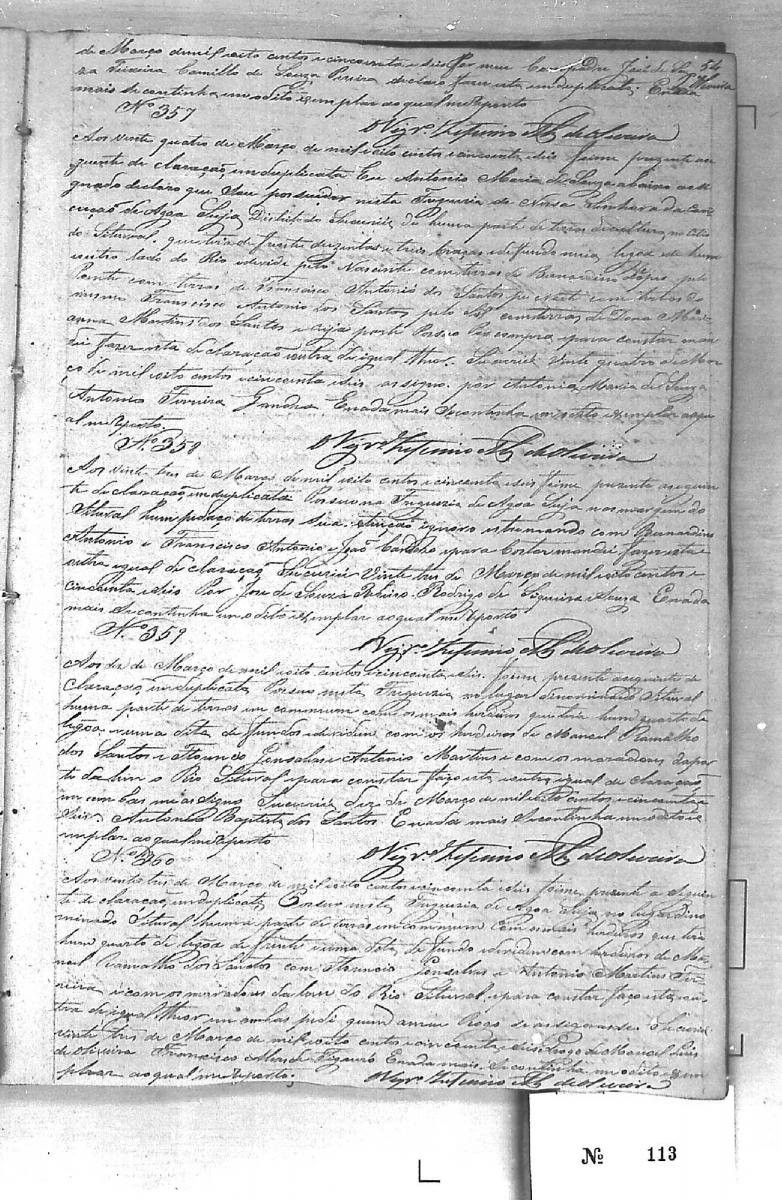 de Março de mil oito centos e cincoenta e seis Por meu Compadre José de Sou 54
za Teixeira Camillo de Souza Pereira declaro fazer esta em duplicata; E nada
mais se continha em o dito exemplar ao qual me reporto
Nº 357
O Vigrº Zeferino de Oliveira
Aos vinte quatro de Março de mil oito centos e cincoenta e seis foi me prezente a se
guinte declaração em duplicata Eu Antonio Maria de Souza abaixo assi
gnado declaro que Sou possuidor nesta Freguezia de Nossa Senhora da Con
ceição de Agoa Suja, Districto do Sucuriú de huma parte de terras de cultura, no citio
do Setuval, que terá de frente duzentas e tres braças e de fundo meia legoa de hum
e outro lado do Rio e divide pelo Nascente com terras de Bernardino Lopes pelo
Poente com terras de Francisco Antonio dos Santos pelo Norte com terras do
mesmo Francisco Antonio dos Santos pelo Sul com terras de Dona Mari
anna Martins dos Santos e cuja parte Possuo Por compra e para constar man
dei fazer esta declaração e outra de igual theor. Sucuriú Vinte quatro de Mar
ço de mil oito centos e cincoenta e seis assigno por Antonio Maria de Souza
Antonio Ferreira Gandra E nada mais se continha em o dito exemplar ao qu
al me reporto
Nº 358
O Vigrº Zeferino de Oliveira
Aos vinte tres de Março de mil oito centos e cincoenta e seis foi me prezente a seguin
te declaração em duplicata Possuo na Freguezia de Agoa Suja nos margem do
Setuval hum pedaço de terras sua estenção ignoro e extremando com Bernardino
Antonio e Francisco Antonio e João Cardozo e para Constar mandei fazer esta e
outra igual declaração Sucuriú Vinte tres de Março de mil oito centos e
cincoenta e seis Por José de Souza Ribeiro. Rodrigo de Siqueira e Souza E nada
mais se continha em o dito exemplar ao qual me reporto
Nº 359
O Vigrº Zeferino de Oliveira
Aos dez de Março de mil oito centos e cincoenta e seis. foi me prezente a seguinte de
claração em duplicata, Possuo nesta Freguezia no lugar denominado Setuval
huma parte de terras em commum com os mais herdeiros que terá hum quarto de
legoa e uma dita de fundos e dividem com os herdeiros de Manoel Ramalho
dos Santos e Florencio Gonsalves e Antonio Martins e com os moradores da par
te da lem o Rio Setuval e para constar faço esta e outra igual declaração
em ambas me assigno Sucuriú dez de Março de mil oito centos e cincoenta e
seis. Antonio Baptista dos Santos E nada mais se continha em o dito e
xemplar ao qual me reporto
Nº 360
O Vigrº Zeferino de Oliveira
Aos vinte tres de Março de mil oito centos e cincoenta e seis foi me prezente a seguin
te declaração em duplicata, Possuo nesta Freguezia de Agoa Suja no lugar deno
minado Setuval huma parte de terras em commum com os mais herdeiros que terá
hum quarto de legoa de frente e uma dita de fundo e dividem com herdeiros de Ma
noel Ramalho dos Santos com Florencio Gonsalves e Antonio Martins Fer
reira e com os moradores da lem do Rio Setuval e para constar faço esta e ou
tra de igual theor em ambas pedi quem a meu Rogo se assignasse Sucuriú
vinte tres de Março de mil oito centos e cincoenta e seis A rogo de Manoel Luis
de Oliveira Francisco E nada mais se continha em o dito exem
plar ao qual me reporto.
O Vigrº Zeferino de Oliveira
Nº 113